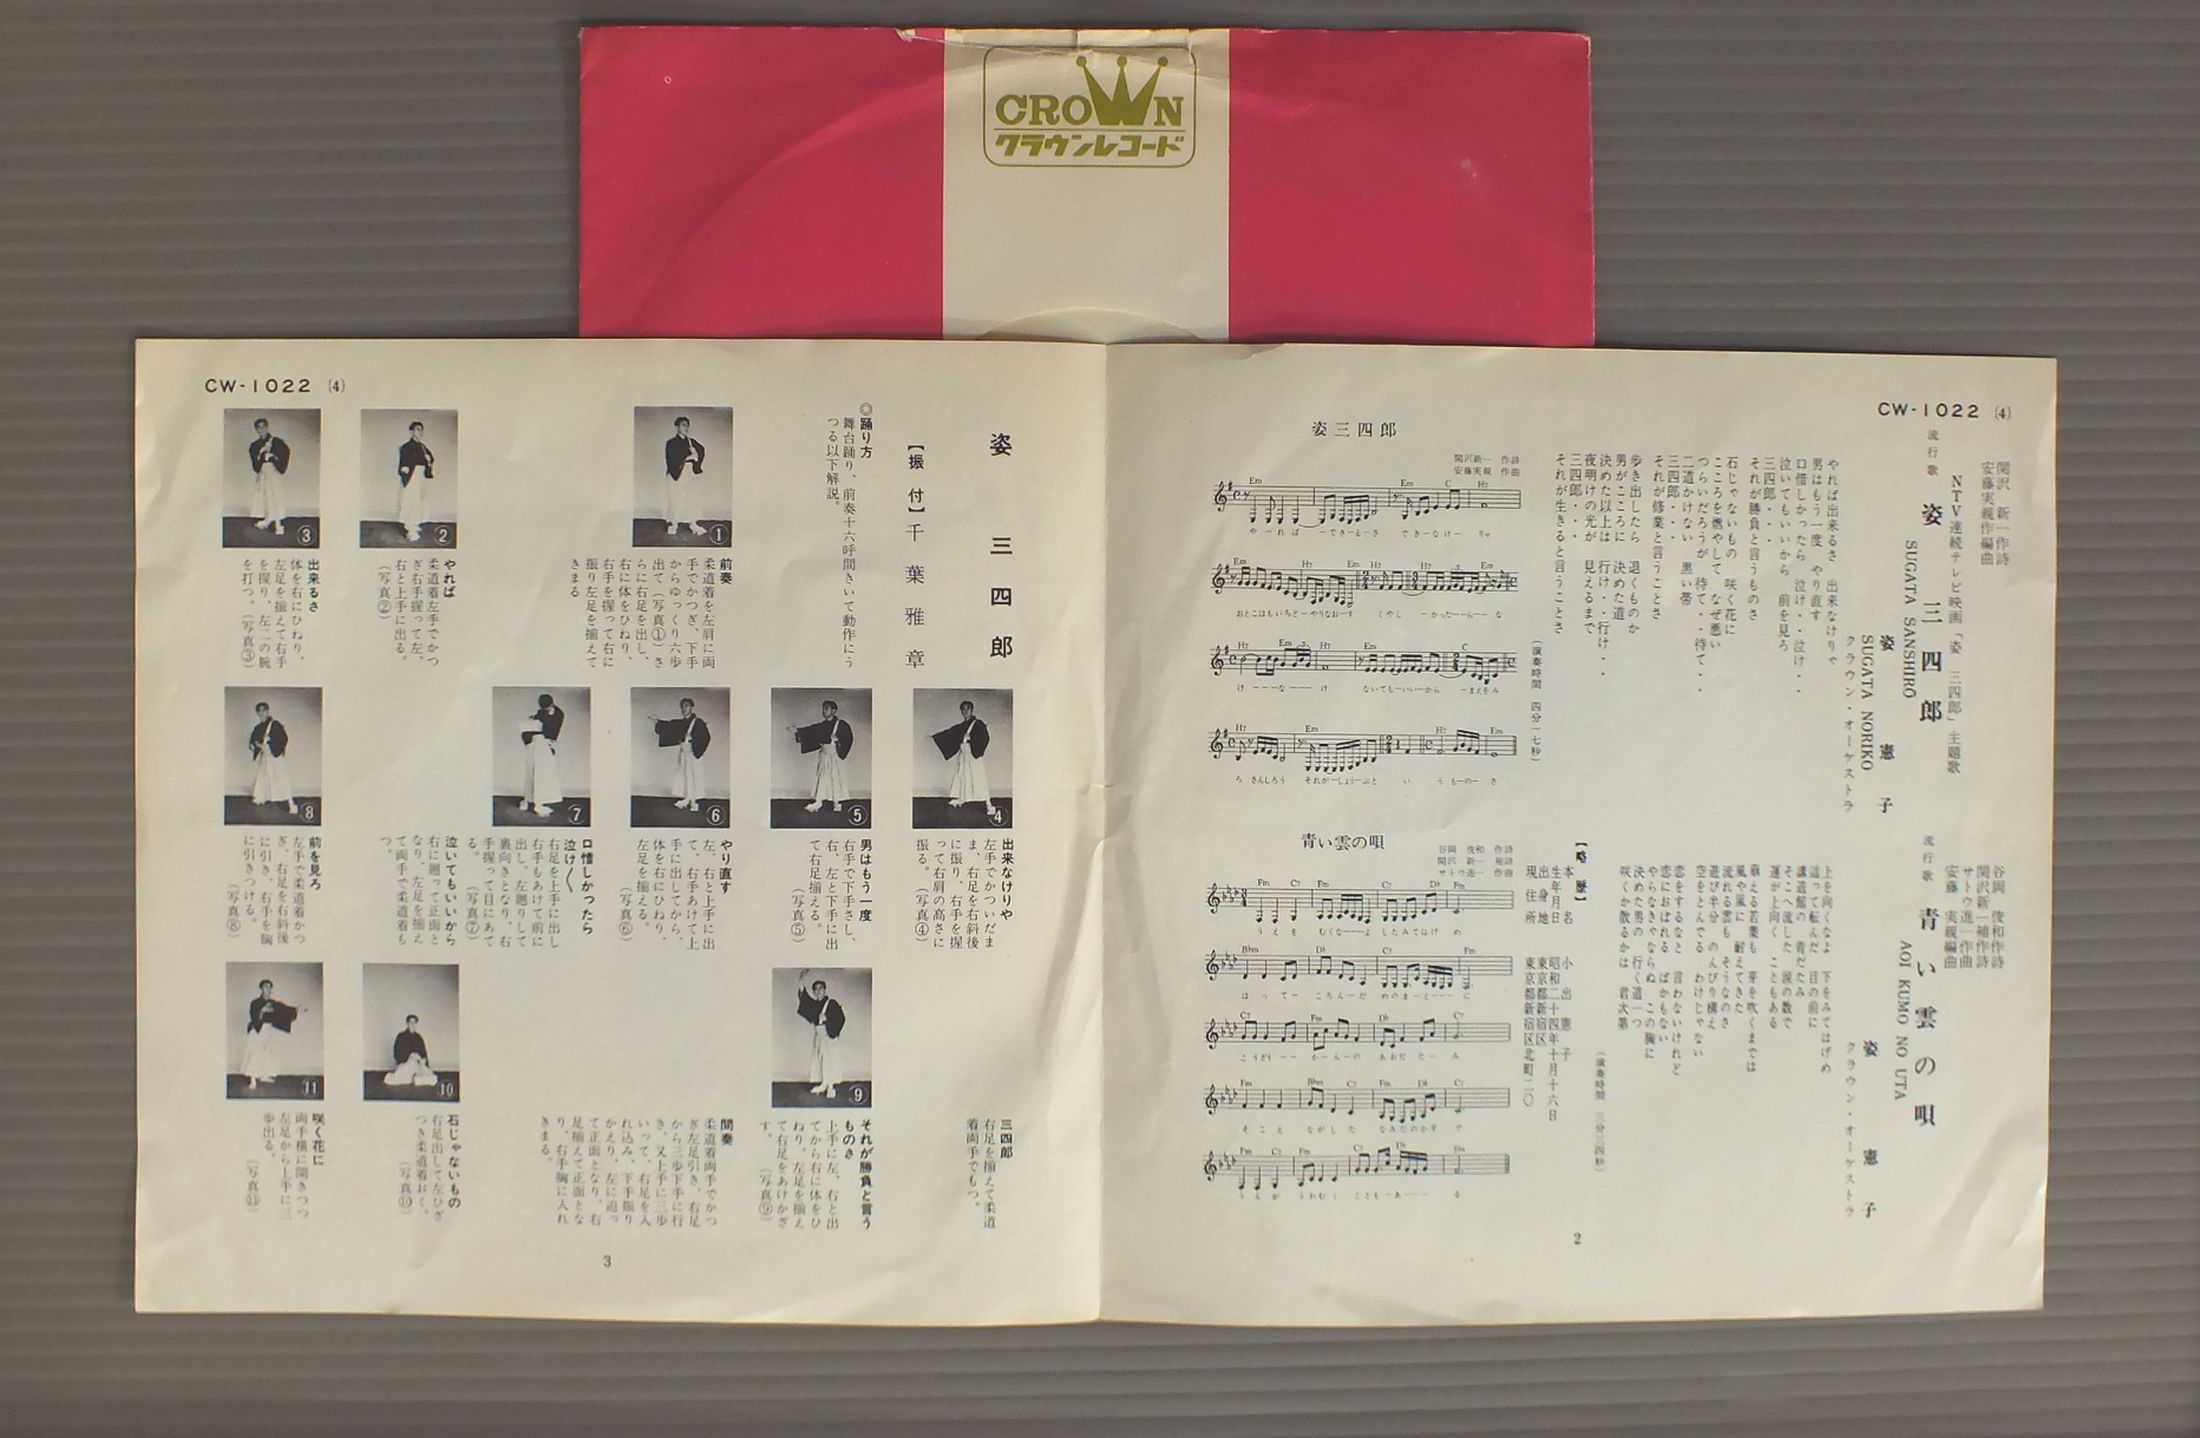 CROWN
クラウンレコード
CW-1022 (4)
関沢 新一作詩
安藤実親作編曲
NTV連続テレビ映画「姿 三四郎」主題歌
流行歌
姿 三四郎
SUGATA SANSHIRO
姿 憲子
SUGATA NORIKO
クラウン・オーケストラ
やれば出来るさ 出来なけりゃ
男はもう一度 やり直す
口惜しかったら 泣け・・泣け・・
泣いてもいいから 前を見ろ
三四郎・・・
それが勝負と言うものさ
石じゃないもの 咲く花に
こころを燃やして なぜ悪い
つらいだろうが 待て・・待て・・
二道かけない 黒い帯
三四郎・・・
それが修業と言うことさ
歩き出したら 退くものか
男がこころに 決めた道
決めた以上は 行け・・行け・・
夜明けの光が 見えるまで
三四郎・・・
それが生きると言うことさ
(演奏時間 四分一七秒)
姿三四郎
関沢新一 作詩
安藤実親 作曲
谷岡 俊和作詩
関沢新一補作詩
サトウ進一作曲
安藤 実親編曲
流行歌
青い雲の唄
AOI KUMO NO UTA
姿 憲子
クラウン・オーケストラ
上を向くなよ 下をみてはげめ
這って転んだ 目の前に
講道館の 青だたみ
そこへ流した 涙の数で
運が上向く こともある
萠える若葉も 夢を吹くまでは
風や嵐に 耐えてきた
流れる雲も そうなのさ
遊び半分 のんびり構え
空をとんでる わけじゃない
恋をするなと 言わないけれど
恋におぼれる ばかもない
やらなきゃならぬ この胸に
決めた男の 行く道一つ
咲くか散るかは 君次第
(演奏時間 三分三四秒)
【略歴】
本名 小出憲子
生年月日 昭和二十四年十月十六日
出身地 東京都新宿区
現住所 東京都新宿区北町二〇
青い雲の唄
谷岡 俊和 作詩
関沢 新一 補詩
サトウ進一 作曲
2
CW-1022 (4)
姿 三四郎
【振付】千葉雅章
◎踊り方
舞台踊り、前奏十六呼間きいて動作にう
つる以下解説。
①
前奏
柔道着を左肩に両
手でかつぎ、下手
からゆっくり六歩
出て(写真①)さ
らに右足を出し、
右に体をひねり、
右手を握って右に
振り左足を揃えて
きまる
②
やれば
柔道着左手でかつ
ぎ右手握って左、
右と上手に出る。
(写真②)
③
出来るさ
体を右にひねり、
左足を揃えて右手
を握り、左二の腕
を打つ。(写真③)
④
出来なけりや
左手でかついだま
ま、右足を右斜後
に振り、右手を握
って右肩の高さに
振る。(写真④)
⑤
男はもう一度
右手で下手さし、
右、左と下手に出
て右足揃える。
(写真⑤)
⑥
やり直す
左、右と上手に出
て、右手あけて上
手に出してから、
体を右にひねり、
左足を揃える。
(写真⑥)
⑦
口惜しかったら
泣け〱
右足を上手に出し
右手もあけて前に
出し、左廻りして
裏向きとなり、右
手握って目にあて
る。(写真⑦)
泣いてもいいから
右に廻って正面と
なり、左足を揃え
て両手で柔道着も
つ。
⑧
前を見ろ
左手で柔道着かつ
ぎ、右足を右斜後
に引き、右手を胸
に引きつける。
(写真⑧)
三四郎
右足を揃えて柔道
着両手でもつ。
⑨
それが勝負と言う
ものさ
上手に左、右と出
てから右に体をひ
ねり、左足を揃え
て右足をあけかぎ
す。(写真⑨)
間奏
柔道着両手でかつ
ぎ左足引き、右足
から三歩下手に行
き、又上手に三歩
いって、右足を入
れ込み、下手振り
かえり、左に追っ
て正面となり、右
足揃えて正面とな
り、右手胸に入れ
きまる。
⑩
石じゃないもの
右足出して左ひざ
つき柔道着おく。
(写真⑩)
⑪
咲く花に
両手横に開きつつ
左足から上手に三
歩出る。
(写真⑪)
3